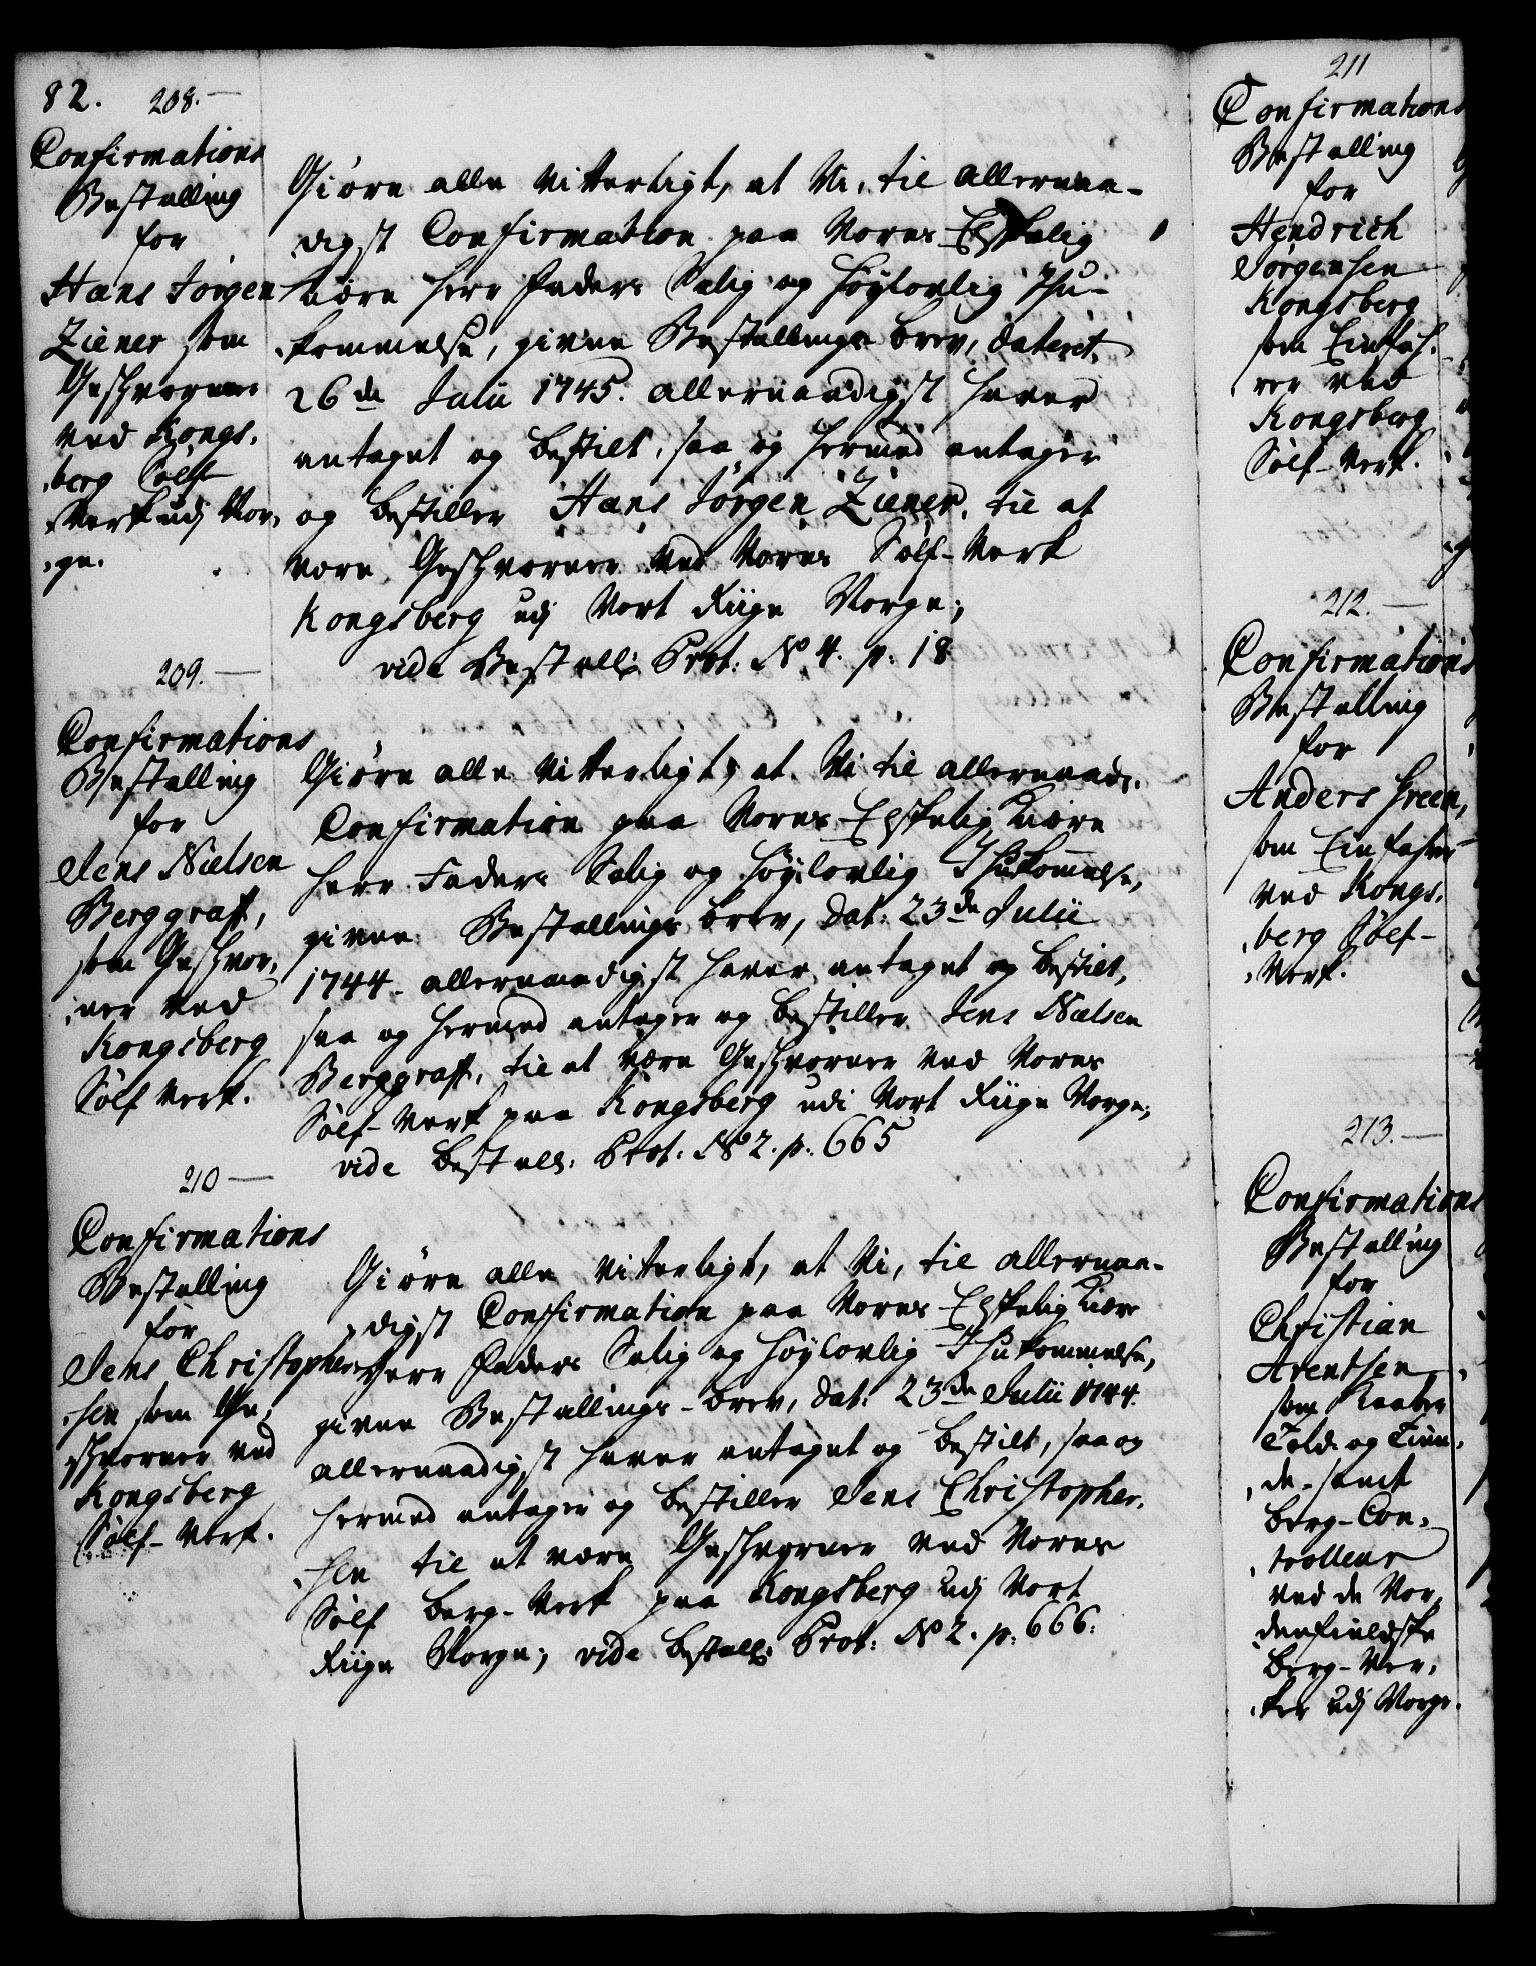 82.
208.
Confirmations
Bestalling
for
Hans Jörgen
Ziener som
Geschvorner
ved Kongs,
,berg Sölf
Werk udj Nor,
,ge.
Giöre alle Vitterligt, at Vi, til allernaa-
digst Confirmation paa Vores Elskelig
kiære Herr Faders Salig og Höylovlig Ihu-
kommelse, givne Bestallings brev, dateret
26de Julii 1745. allernaadigst haver
antaget og bestilt, saa og hermed antager
og bestiller Hans Jörgen Ziener, til at
være Geschvorner ved Vores Sölf-Verk
Kongsberg udj Vort Riige Norge;
vide Bestall: Prot: No 4. p: 18
209.
Confirmations
Bestalling
for
Jens Nielsen
Berggraff,
som Geschvor,
,ner ved
Kongsberg
Sölf Verk.
Giöre alle Vitterligt, at Vi til allernaads.
Confirmation paa Vores Elskelig Kiære
Herr Faders Salig og Höylovlig Ihukommelse,
givne Bestallings brev, dat: 23de Julii
1744. allernaadigst haver antaget og bestilt,
saa og hermed antager og bestiller Jens Nielsen
Berggraff, til at være Geschvorner ved Vores
Sölf-Verk paa Kongsberg udi Vort Riige Norge;
vide bestall: Prot: No 2. p: 665
210
Confirmations
Bestalling
for
Jens Christopher
,sen som Ge,
,schvorner ved
Kongsberg
Sölf-Verk.
Giöre alle vitterligt, at Vi, til allernaa-
,digst Confirmation paa Vores Elskelig Kiære
Herr Faders Salig og Höylovlig Ihukommelse,
givne Bestallings-brev, dat: 23de Julii 1744.
allernaadigst haver antaget og bestilt, saa og
hermed antager og bestiller Jens Christopher,
,sen til at være Geschvorner ved Vores
Sölf Berg-Verk paa Kongsberg udj Vort
Riige Norge; vide bestall: Prot: No 2. p: 666.
211
Confirmations
Bestalling
for
Hendrich
Jörgensen
Kongsberg
som Einfah,
rer ved
Kongsberg
Sölf-Verk.
212.
Confirmations
Bestalling
for
Anders Green,
som Einfahrer
ved Kongs,
,berg Sölf-
,Verk.
213.
Confirmations
Bestalling
for
Christian
Arentsen
som Kaaber
Told og Tien,
,de-samt
Berg-Con,
,trolleur
ved de Nor,
,denfieldske
Berg-Ver,
,ker udj Norge.